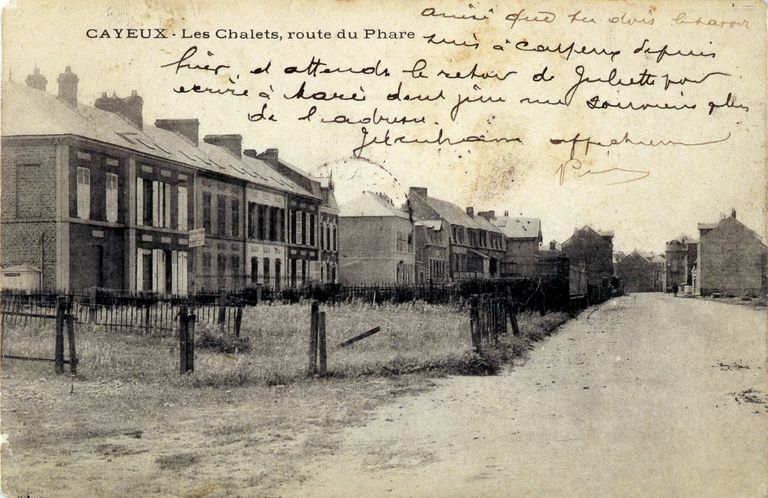 CAYEUX - Les Chalets, route du Phare
que tu dois le savoir
suis à cayeux depuis
hier, et attends le retour de Juliette pour
écrire à Marie dont je ne me souviens plus
de l'adresse.